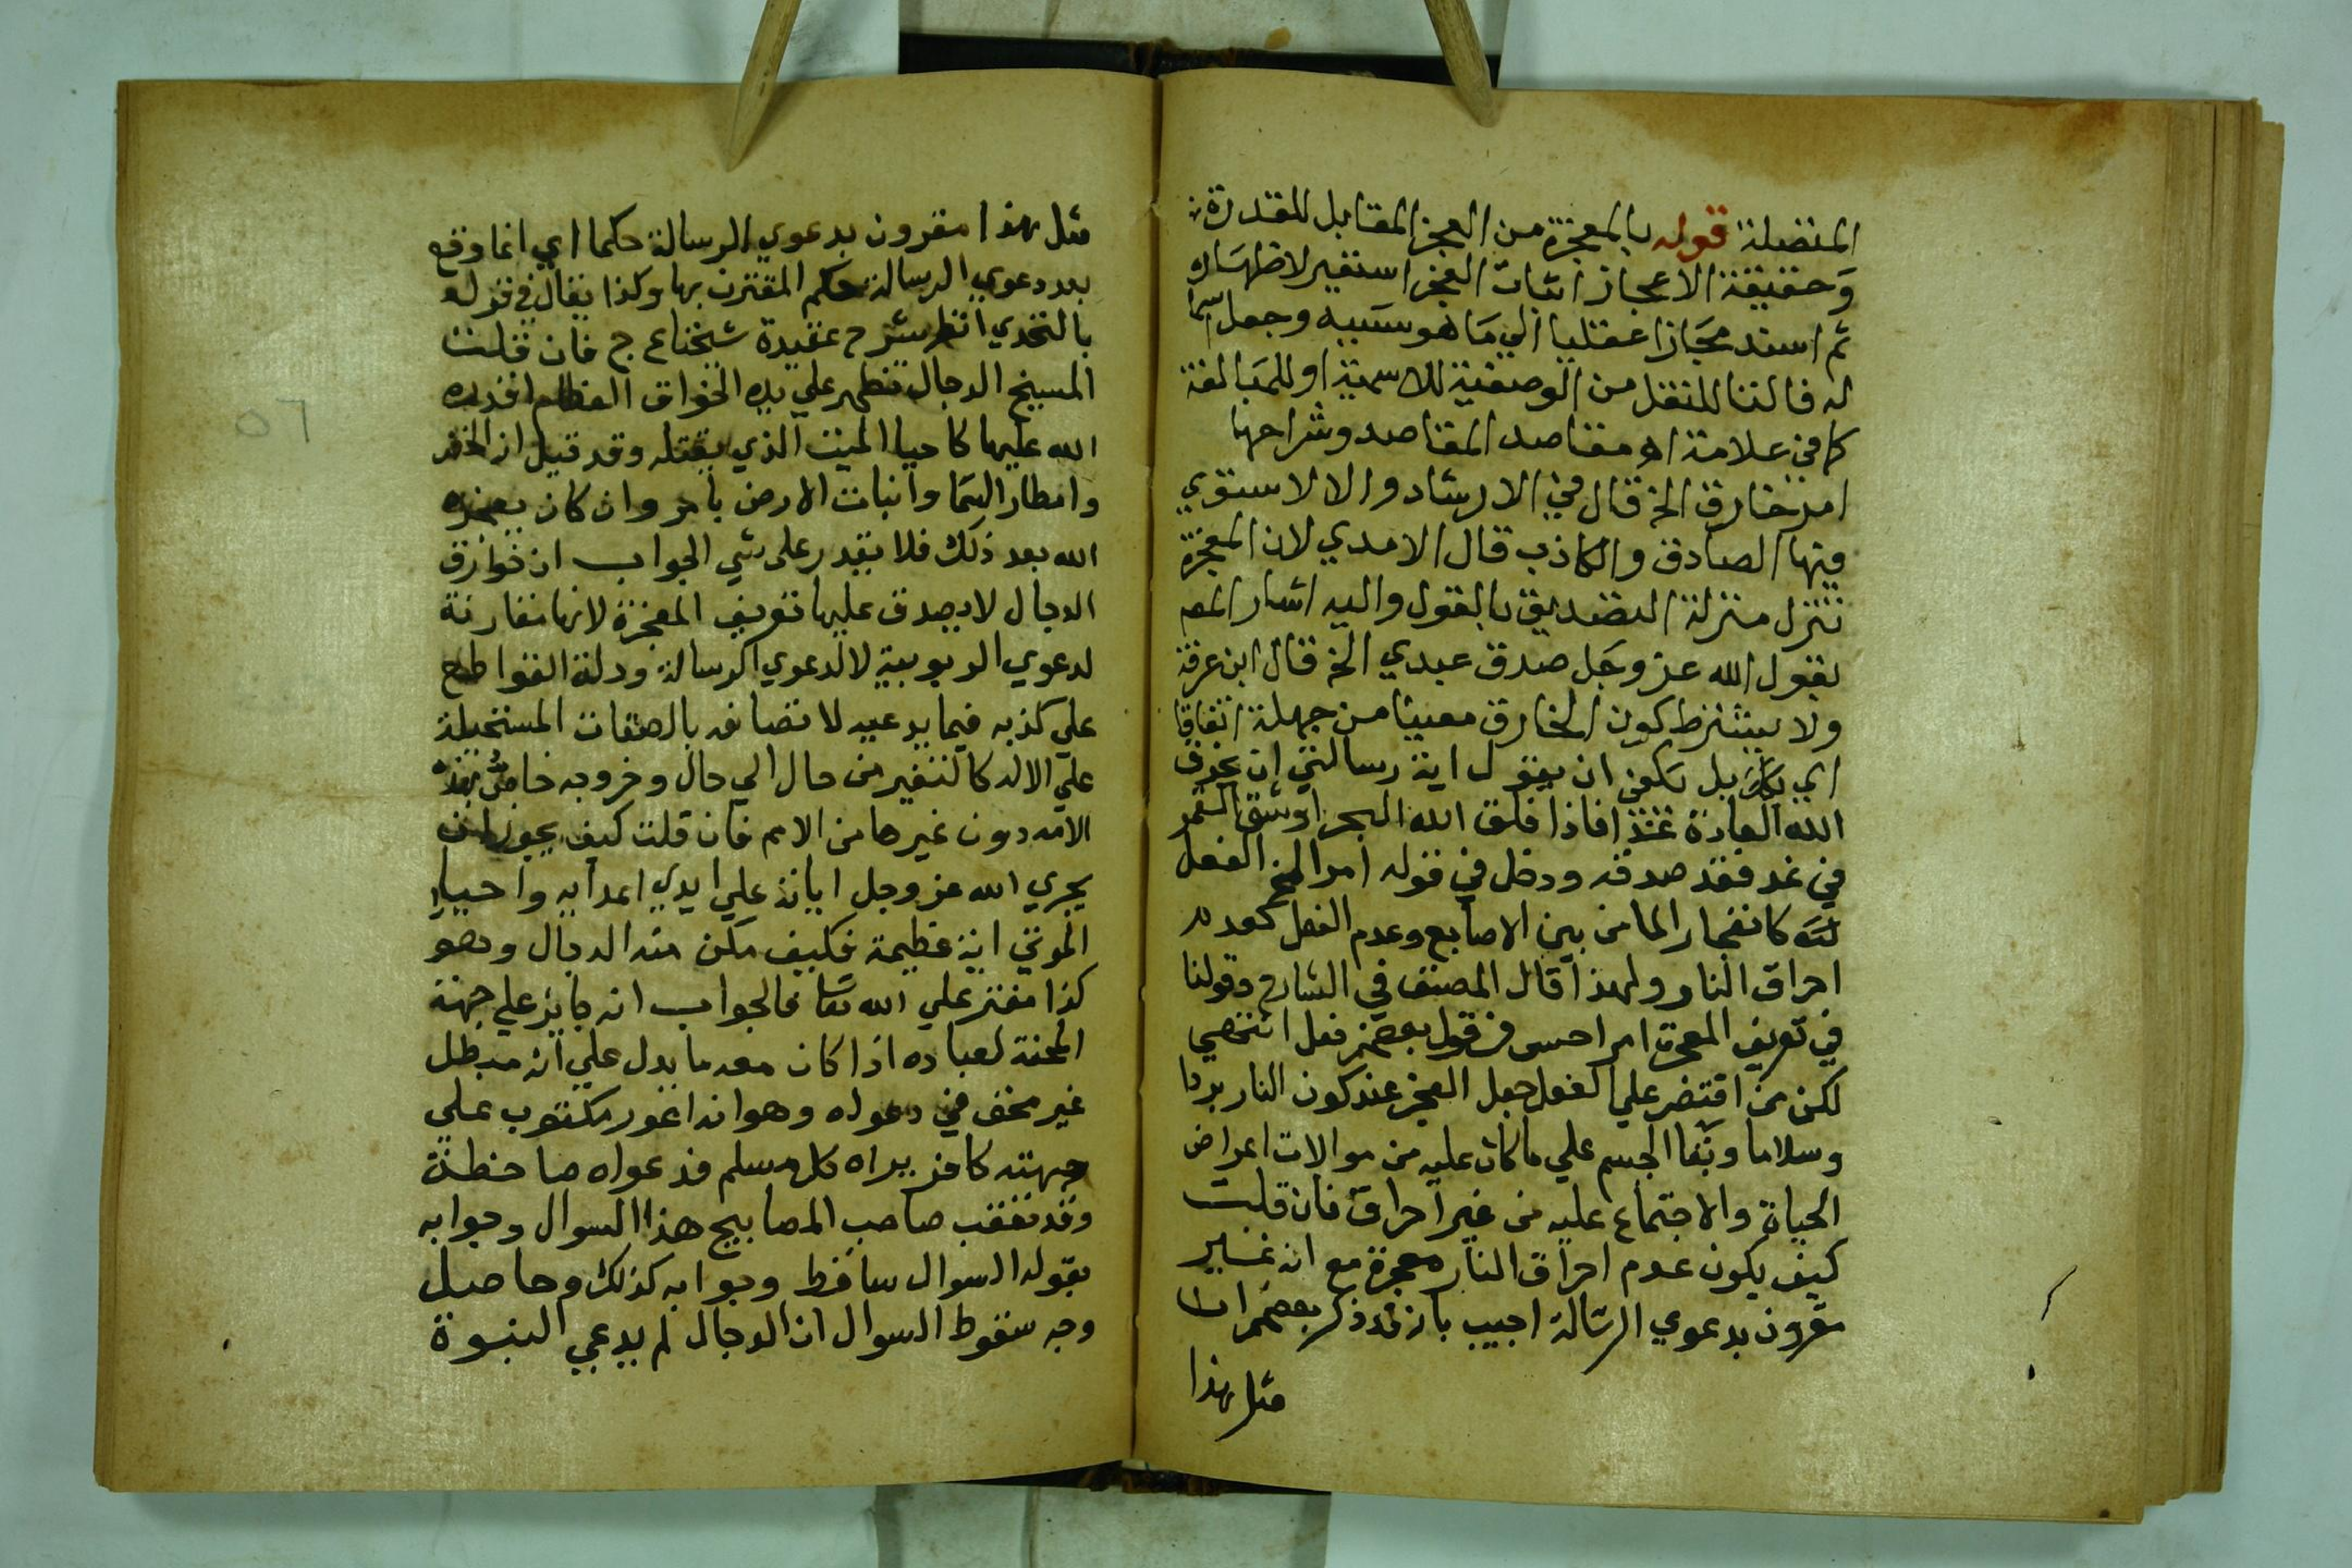 المنضلة قوله بالمعجزة من العجز المقابل للمقدرة
وحقيقة الاعجاز اثبات العجز استعير لاظهاره
ثم اسند مجازا عقليا الي ما هو سببه وجعل اسما
له فالتا للنقل من الوصفية للاسمية او للمبالغة
كما في علامة اه مقاصد المقاصد وشراحها
امر خارق الخ قال في الارشاد والا لاستوي
فيها الصادق والكاذب قال الامدي لان المعجزة
تنزل منزلة التصديق بالقول واليه اشار المص
بقول الله عز وجل صدق عبدي الخ قال ابن عرفة
ولا يشترط كون الخارق معينا من جهلة اتفاقا
اي بل يكفي ان يقول اية رسالتي ان يخرق
الله العادة غدا فاذا فلق الله البحر او شق القمر
في غد فقد صدقه ودخل في قوله امر الخ الفعل
كانفجار الما من بين الاصابع وعدم الفعل كعدم
احراق النار ولهذا قال المصنف في الشارح وقولنا
في تعريف المعجزة امر احسن من قول بعضهم فعل انتهي
لكن من اقتصر علي الفعل جعل العجز عند كون النار بردا
وسلاما وبقا الجسم علي ما كان عليه من موالات اعراض
الحياة والاجتماع عليه من غير احراق فان قلت
كيف يكون عدم احراق النار معجزة مع انه غير
مقرون بدعوي الرسالة اجيب بانه قد ذكر بعضهم ان
مثل هذا
مثل هذا مقرون بدعوي الرسالة حكما اي انما وقع
بعد دعوي الرسالة حكم المقترن بها وكذا يقال في قوله
بالتحدي انظر شرح عقيدة شيخنا ع ج فان قلت
المسيخ الدجال تظهر علي يده الخواق العظام اقدره
الله عليها كاحيا الميت الذي يقتله وقد قيل انه الخضر
وامطار السما وانبات الارض بامره وان كان يعجزه
الله بعد ذلك فلا يقدر على شي الجواب ان خوارق
الدجال لا يصدق عليها تعريف المعجزة لانها مقارنة
لدعوي الربوبية لا لدعوي الرسالة ودلة القواطع
علي كذبه فيما يدعيه لاتصافه بالصفات المستحيلة
علي الاله كالتغير من حال الي حال وخروجه خاص بهذه
الامة دون غيرها من الامم فان قلت كيف يجوز ان
يجري الله عز وجل اياته علي ايدي اعدايه واحيا
الموتي اية عظيمة فكيف مكن منه الدجال وهو
كذا مفتر علي الله تعا فالجواب انه جايز علي جهة
المحنة لعباده اذا كان معه ما يدل علي انه مبطل
غير محق في دعواه وهو انه اعور مكتوب علي
جبهته كافر يراه كل مسلم فدعواه ضاحظة
وقد تعقب صاحب المصابيح هذا السوال وجوابه
بقوله السوال ساقط وجوابه كذلك وحاصل
وجه سقوط السوال ان الدجال لم يدعي النبوة
٥٦